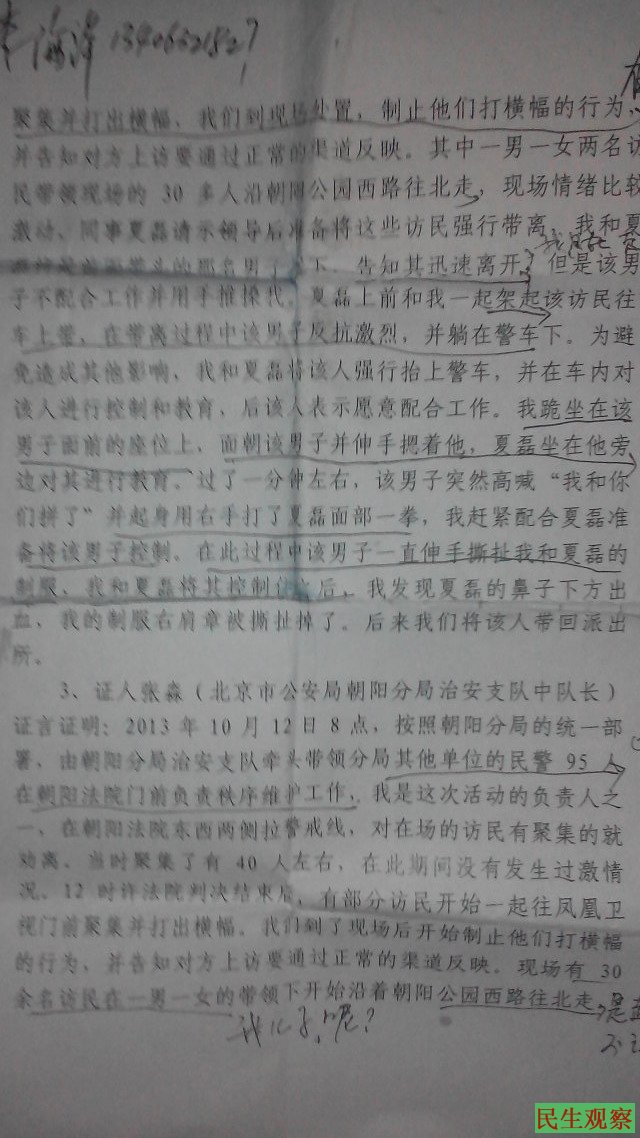 海洋 13406521827
聚集并打出横幅，我们到现场处置，制止他们打横幅的行为，
并告知对方上访要通过正常的渠道反映。其中一男一女两名访
民带领现场的 30 多人沿朝阳公园西路往北走，现场情绪比较
激动，同事夏磊请示领导后准备将这些访民强行带离，我和夏
告知其迅速离开，但是该男
子不配合工作并用手推搡我。夏磊上前和我一起架起该访民往
车上带，在带离过程中该男子反抗激烈，并躺在警车下。为避
免造成其他影响，我和夏磊将该人强行抬上警车，并在车内对
该人进行控制和教育，后该人表示愿意配合工作。我跪坐在该
男子面前的座位上，面朝该男子并伸手把着他，夏磊坐在他旁
边对其进行教育。过了一分钟左右，该男子突然高喊“我和你
们拼了”并起身用右手打了夏磊面部一拳，我赶紧配合夏磊准
备将该男子控制。在此过程中该男子一直伸手撕扯我和夏磊的
制服，我和夏磊将其控制住之后，我发现夏磊的鼻子下方出
血，我的制服右肩章被撕扯掉了。后来我们将该人带回派出
所。
3、证人张淼（北京市公安局朝阳分局治安支队中队长）
证言证明：2013 年 10 月 12 日 8 点，按照朝阳分局的统一部
署，由朝阳分局治安支队牵头带领分局其他单位的民警 95 人
在朝阳法院门前负责秩序维护工作，我是这次活动的负责人之
一，在朝阳法院东西两侧拉警戒线，对在场的访民有聚集的就
劝离。当时聚集了有 40 人左右，在此期间没有发生过激情
况。12 时许法院判决结束后，有部分访民开始一起往凤凰卫
视门前聚集并打出横幅。我们到了现场后开始制止他们打横幅
的行为，并告知对方上访要通过正常的渠道反映。现场有 30
余名访民在一男一女的带领下开始沿着朝阳公园西路往北走，
我儿子呢？
民生观察